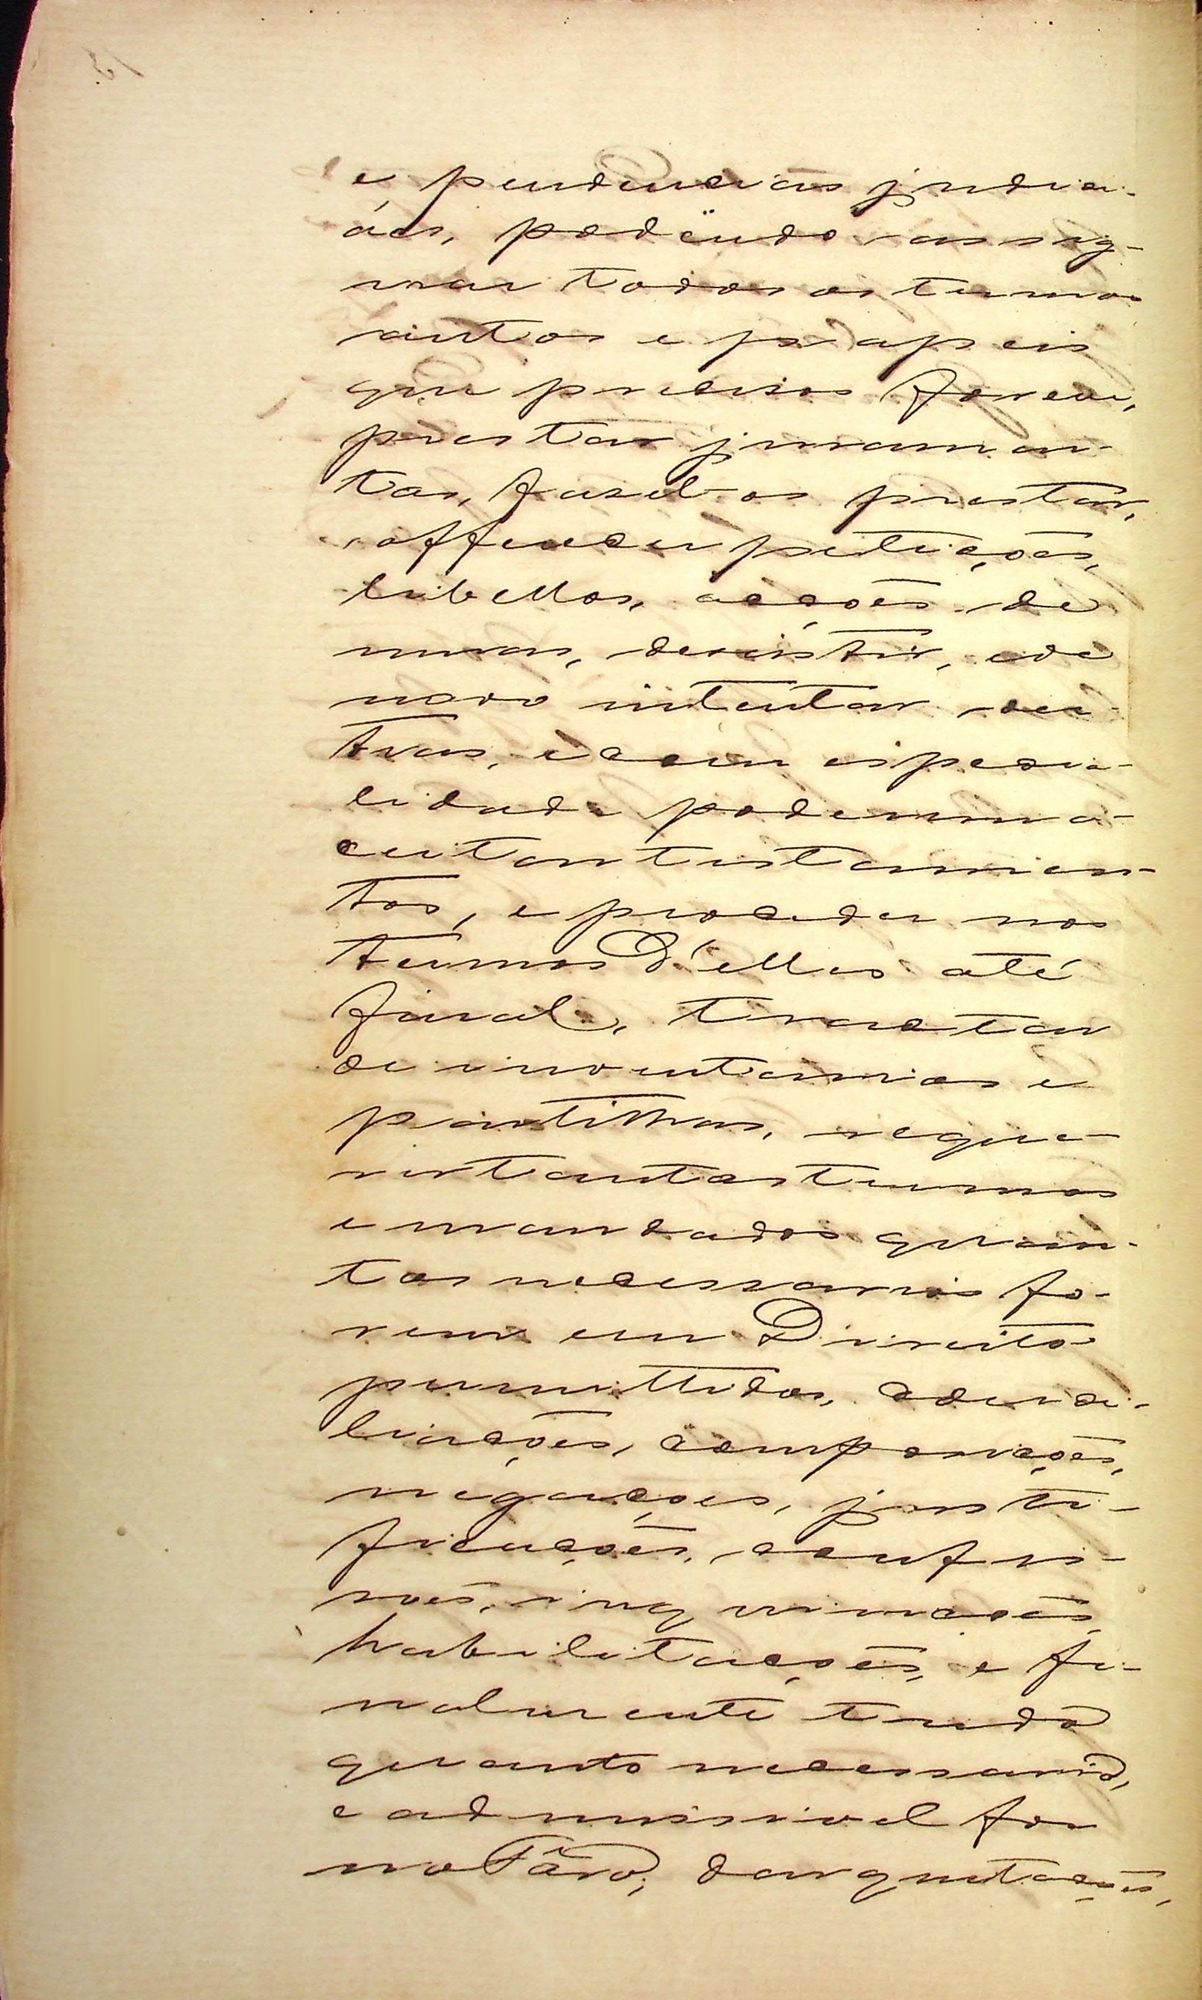 e pendencias judici-
áes, podendo assig-
nar todos os termos
autos e papeis
que precisos forem,
prestar juramen-
tos, fasel-os prestar,
offerecer petições,
libellos, acções de
novas, desistir, e de
novo intentar ou-
tras, e com especia-
lidade poderem a-
ceitar testamen-
tos, e proceder nos
termos d'elles até
final, tractar
de inventarios e
partilhas, reque-
rer tantos termos
e mandados quan-
tos necessarios fo-
rem em Direito
permittidos, conci-
liações, composições,
negações, justi-
ficações, confis-
sões, inquirições,
habilitações, e fi-
nalmente tudo
quanto necessario,
e admissivel for
no Fôro; dar quitações,